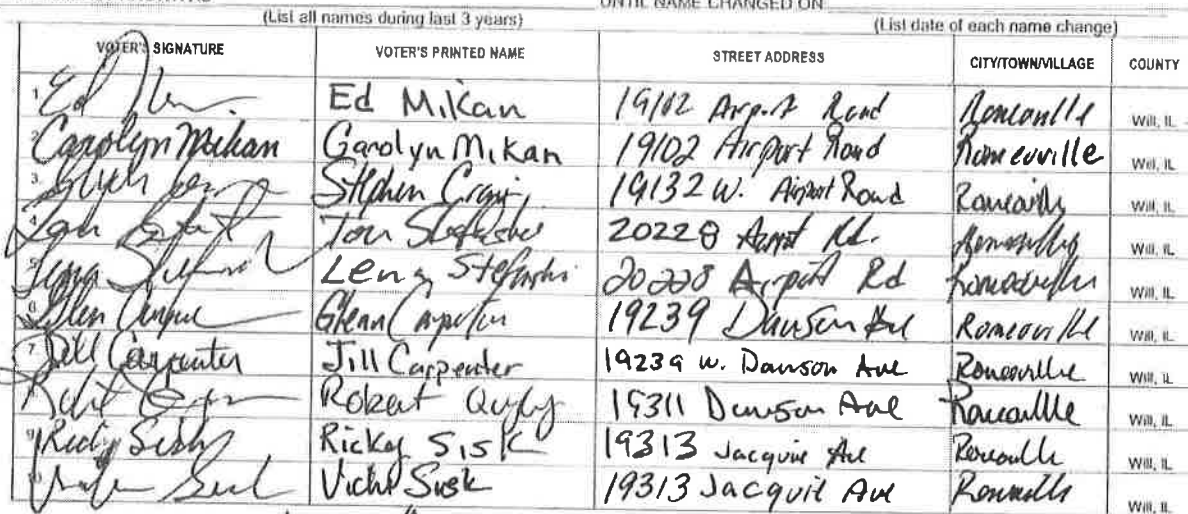 UNTIL NAME CHANGED ON
(List all names during last 3 years) (List date of each name change)
VOTER'S SIGNATURE VOTER'S PRINTED NAME STREET ADDRESS CITY/TOWN/VILLAGE COUNTY
1. Ed Ed Mikan 19102 Airport Road Romeoville Will, IL
2. Carolyn Mikan Carolyn Mikan 19102 Airport Road Romeoville Will, IL
3. Stephen Craig 19132 W. Airport Road Romeoville Will, IL
4. Tom 20228 Airport Rd. Romeoville Will, IL
5. Lena 20228 Airport Rd Romeoville Will, IL
6. Glenn Carpenter Glenn Carpenter 19239 Dawson Ave Romeoville Will, IL
7. Jill Carpenter Jill Carpenter 19239 W. Dawson Ave Romeoville Will, IL
Robert 19311 Dawson Ave Romeoville Will, IL
9. Ricky Sisk Ricky Sisk 19313 Jacquie Ave Romeoville Will, IL
10. Vicki Sisk 19313 Jacquie Ave Romeoville Will, IL